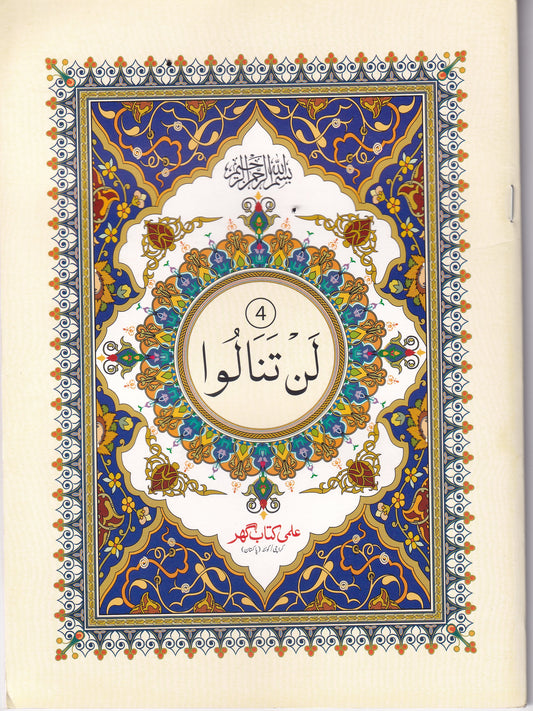 بسم الله الرحمن الرحيم
4
لَنْ تَنَالُوا
علمی کتاب گھر
کراچی/کوئٹہ (پاکستان)